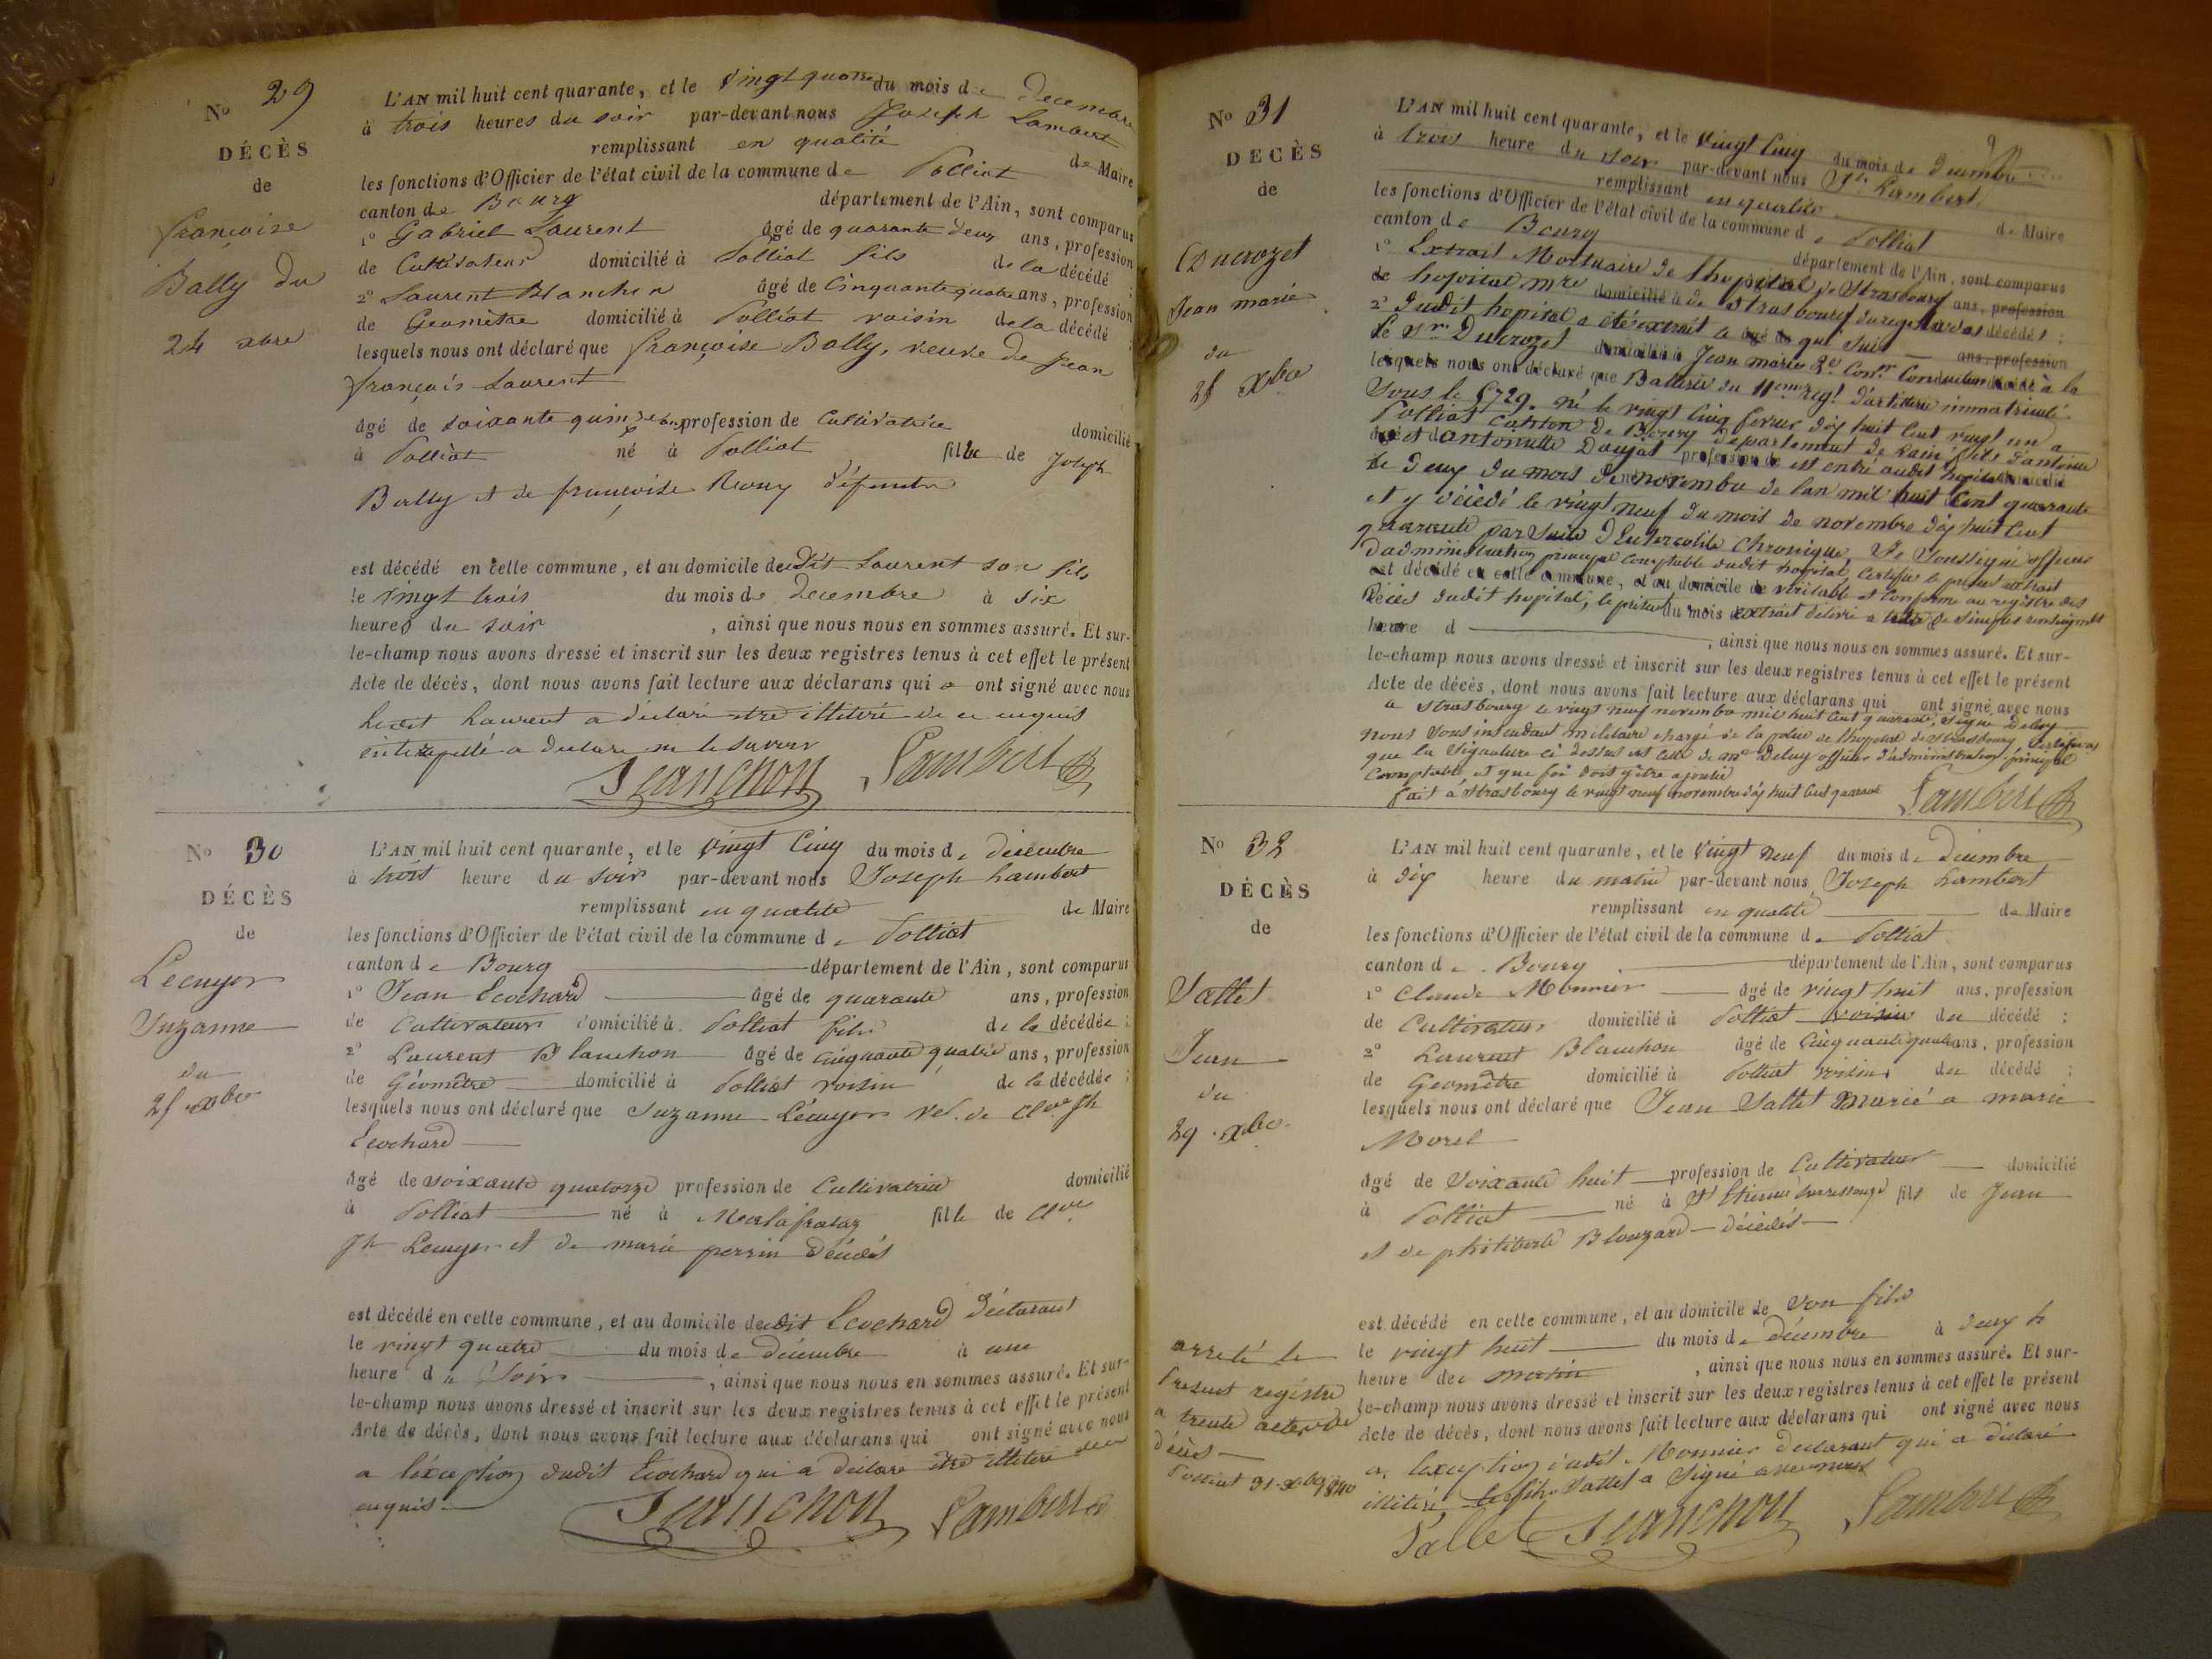 No 29
DÉCÈS
de
françoise
Bally du
24 xbre
L'AN mil huit cent quarante, et le vingt quatre du mois de decembre
à trois heures du soir par-devant nous Joseph Lambert
remplissant en qualité de Maire
les fonctions d'Officier de l'état civil de la commune de Polliat
canton de Bourg département de l'Ain, sont comparus
1° Gabriel Laurent âgé de quarante deux ans, profession
de Cultivateur domicilié à Polliat fils de la décédé ;
2° Laurent Blanchon âgé de Cinquante quatre ans, profession
de Geomètre domicilié à Polliat voisin de la décédé ;
lesquels nous ont déclaré que françoise Bally, veuve de jean
françois Laurent
âgé de soixante quinze ans profession de Cultivatrice domicilié
à Polliat né à Polliat fille de Joseph
Bally et de françoise défunts
est décédé en cette commune, et au domicile dudit Laurent son fils
le vingt trois du mois de Decembre à six
heures du soir , ainsi que nous nous en sommes assuré. Et sur-
le-champ nous avons dressé et inscrit sur les deux registres tenus à cet effet le présent
Acte de décès, dont nous avons fait lecture aux déclarans qui ont signé avec nous
Ledit Laurent a déclaré etre illitéré de ce enquis
enterpellé a declare ne le savoir
Blanchon Lambert
No 30
DÉCÈS
de
Lecuyer
Suzanne
du
25 xbre
L'AN mil huit cent quarante, et le vingt Cinq du mois de décembre
à trois heure du soir par-devant nous Joseph Lambert
remplissant en qualité de Maire
les fonctions d'Officier de l'état civil de la commune de Polliat
canton de Bourg département de l'Ain, sont comparus
1° Jean Ecochard âgé de quarante ans, profession
de Cultivateur domicilié à Polliat fils de la décédée ;
2° Laurent Blanchon âgé de cinquante quatre ans, profession
de Géomètre domicilié à Polliat voisin de la décédée ;
lesquels nous ont déclaré que Suzanne Lécuyer ve. de Cde Jh
Ecochard
âgé de soixante quatorze profession de Cultivatrice domicilié
à Polliat né à Malafretaz fille de Cde
Jh Lecuyer et de marie perrin décédés
est décédé en cette commune, et au domicile dudit Ecochard déclarant
le vingt quatre du mois de décembre à une
heure du Soir , ainsi que nous nous en sommes assuré. Et sur-
le-champ nous avons dressé et inscrit sur les deux registres tenus à cet effet le présent
Acte de décès, dont nous avons fait lecture aux déclarans qui ont signé avec nous
a lexception dudit Ecochard qui a déclaré être illitéré de ce
enquis
Blanchon Lambert
9
No 31
DÉCÈS
de
Ducrozet
Jean marie
du
25 xbre
L'AN mil huit cent quarante, et le vingt Cinq du mois de décembre
à trois heure du soir par-devant nous Jh Lambert
remplissant en qualité de Maire
les fonctions d'Officier de l'état civil de la commune de Polliat
canton de Bourg département de l'Ain, sont comparus
1° Extrait Mortuaire de l'hopital de Strasbourg ans, profession
de hopital mre domicilié à de Strasbourg du registre des décédés ;
2° dudit hopital a été extrait ce âgé de qui suit ans, profession
Le Sr. Ducrozet domicilié à Jean marie 2e Conr Conducteur à la
lesquels nous ont déclaré que Batterie du 11eme regt. d'artillerie immatriculé
Sous le 5729. né le vingt Cinq fevrier dix huit Cent vingt un a
Polliat Canton de Bourg département de lain fils d'antoine
âgé et d'antoinette Daujat profession de est entré audit hopital domicilié
le Deux du mois de novembre de lan mil huit Cent quarante
et y décédé le vingt neuf du mois de novembre dix huit Cent
quarante par Suite d'Entérocolite Chronique, Je Soussigné officier
d'administration principal Comptable dudit hopital Certifie le présent extrait
est décédé en cette commune, et au domicile de véritable et Conforme au registre des
Décès dudit hopital, le présent du mois extrait délivré a titre de simples renseignts
heure d , ainsi que nous nous en sommes assuré. Et sur-
le-champ nous avons dressé et inscrit sur les deux registres tenus à cet effet le présent
Acte de décès, dont nous avons fait lecture aux déclarans qui ont signé avec nous
a Strasbourg le vingt neuf novembre mil huit Cent quarante, Signé Deluy
nous Sous intendant militaire chargé de la police de lhopital de Strasbourg certifions
que la Signature ci dessus est celle de mr Deluy officier d'administration principal
Comptable et que foi doit y être ajoutée
fait à Strasbourg le vingt neuf novembre dix huit Cent quarante
Lambert
No 32
DÉCÈS
de
Pallet
Jean
du
29 xbre
L'AN mil huit cent quarante, et le Vingt neuf du mois de décembre
à dix heure du matin par-devant nous Joseph Lambert
remplissant en qualité de Maire
les fonctions d'Officier de l'état civil de la commune de Polliat
canton de Bourg département de l'Ain, sont comparus
1° Claude Monnier âgé de vingt huit ans, profession
de Cultivateur domicilié à Polliat voisin du décédé ;
2° Laurent Blanchon âgé de Cinquante quatre ans, profession
de Geomètre domicilié à Polliat voisin du décédé ;
lesquels nous ont déclaré que Jean Pallet marié a marie
Morel
âgé de Soixante huit profession de Cultivateur domicilié
à Polliat né à St Etienne fils de Jean
et de philiberte Blouzard décédés
est décédé en cette commune, et au domicile de Son fils
le vingt huit du mois de décembre à deux h
heure de matin , ainsi que nous nous en sommes assuré. Et sur-
le-champ nous avons dressé et inscrit sur les deux registres tenus à cet effet le présent
Acte de décès, dont nous avons fait lecture aux déclarans qui ont signé avec nous
a lexception dudit Monnier declarant qui a déclaré
illitéré, le fils Pallet a Signé avec nous
Pallet Blanchon Lambert
arreté le
Présent registre
a trente actes de
décès
Polliat 31 xbre 1840